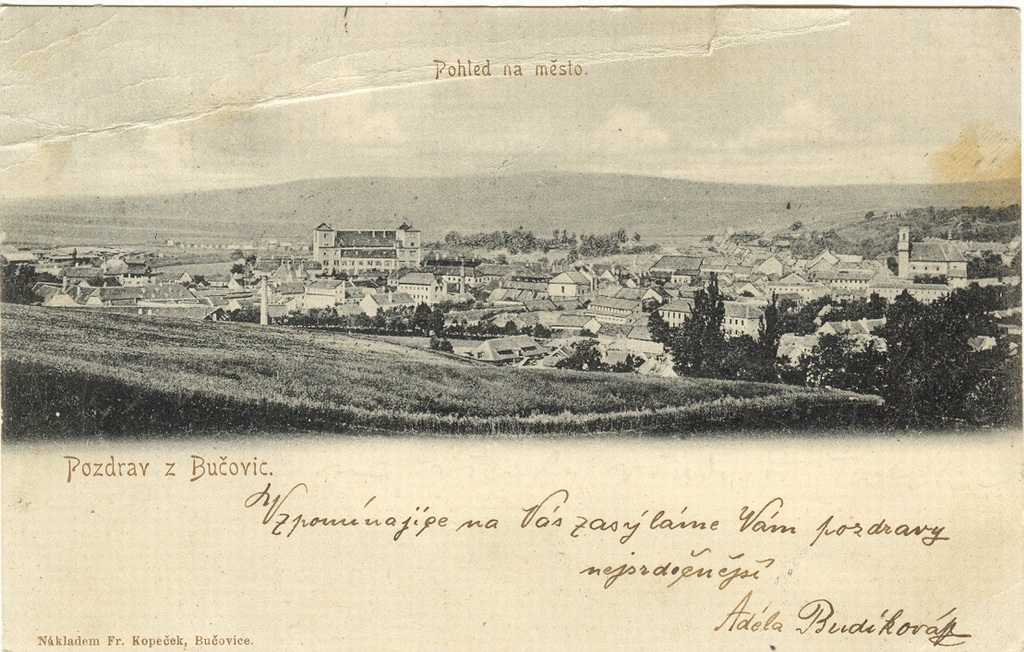 Pohled na město.
Pozdrav z Bučovic.
Vzpomínajíce na Vás zasýláme Vám pozdravy
nejsrdečnější
Adéla Budíková
Nákladem Fr. Kopeček, Bučovice.